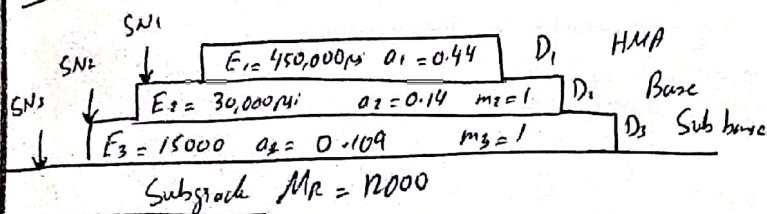 SN1
E1 = 450,000psi a1 = 0.44 D1 HMA
SN2
E2 = 30,000psi a2 = 0.14 m2 = 1 D2 Base
SN3
E3 = 15000 a3 = 0.109 m3 = 1 D3 Sub base
Subgrade MR = 12000